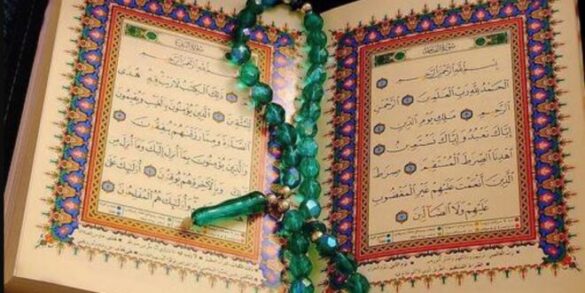 سُورَةُ الفَاتِحَة
بِسْمِ اللَّهِ الرَّحْمَٰنِ الرَّحِيمِ
الْحَمْدُ لِلَّهِ رَبِّ الْعَالَمِينَ الرَّحْمَٰنِ
الرَّحِيمِ مَالِكِ يَوْمِ الدِّينِ
إِيَّاكَ نَعْبُدُ وَإِيَّاكَ نَسْتَعِينُ
اهْدِنَا الصِّرَاطَ الْمُسْتَقِيمَ صِرَاطَ
الَّذِينَ أَنْعَمْتَ عَلَيْهِمْ غَيْرِ الْمَغْضُوبِ
عَلَيْهِمْ وَلَا الضَّالِّينَ
سُورَةُ البَقَرَة
بِسْمِ اللَّهِ الرَّحْمَٰنِ الرَّحِيمِ
ذَٰلِكَ الْكِتَابُ لَا رَيْبَ فِيهِ هُدًى
الَّذِينَ يُؤْمِنُونَ بِالْغَيْبِ وَيُقِيمُونَ
الصَّلَاةَ وَمِمَّا رَزَقْنَاهُمْ يُنْفِقُونَ
وَالَّذِينَ يُؤْمِنُونَ بِمَا أُنْزِلَ إِلَيْكَ
وَبِالْآخِرَةِ هُمْ يُوقِنُونَ أُولَٰئِكَ عَلَىٰ
وَأُولَٰئِكَ هُمُ الْمُفْلِحُونَ